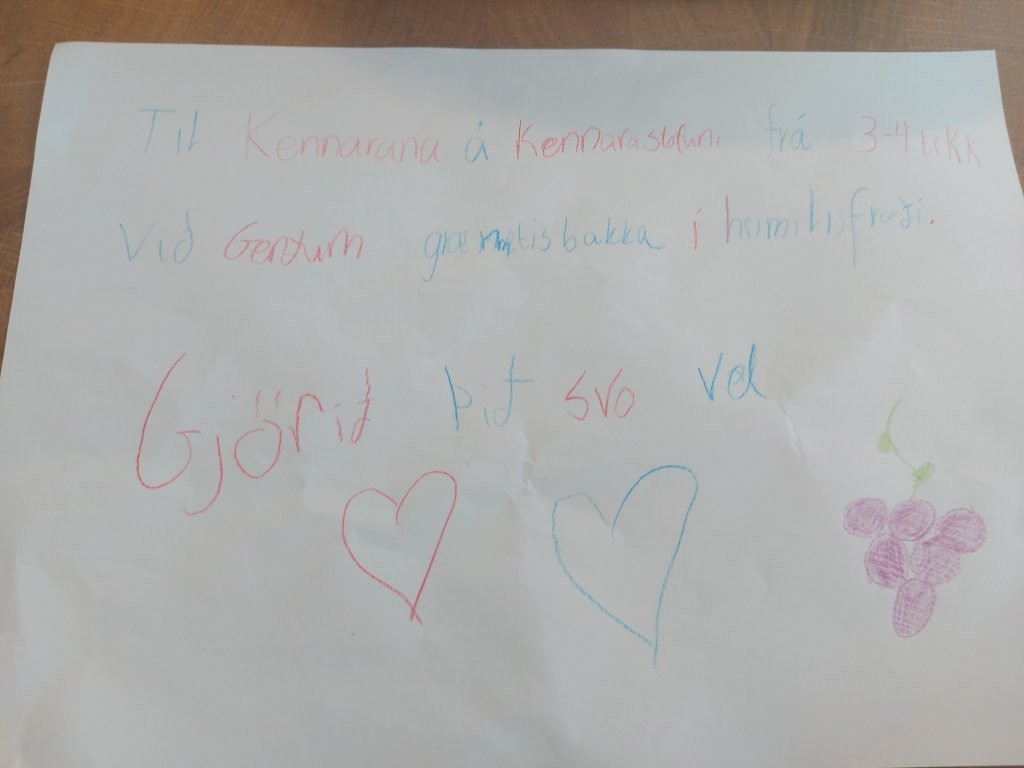 Til Kennarana á Kennarastofuni frá 3-4. bekk
Við Gerðum grænmetisbakka í heimilisfræði.
Gjörið þið svo vel